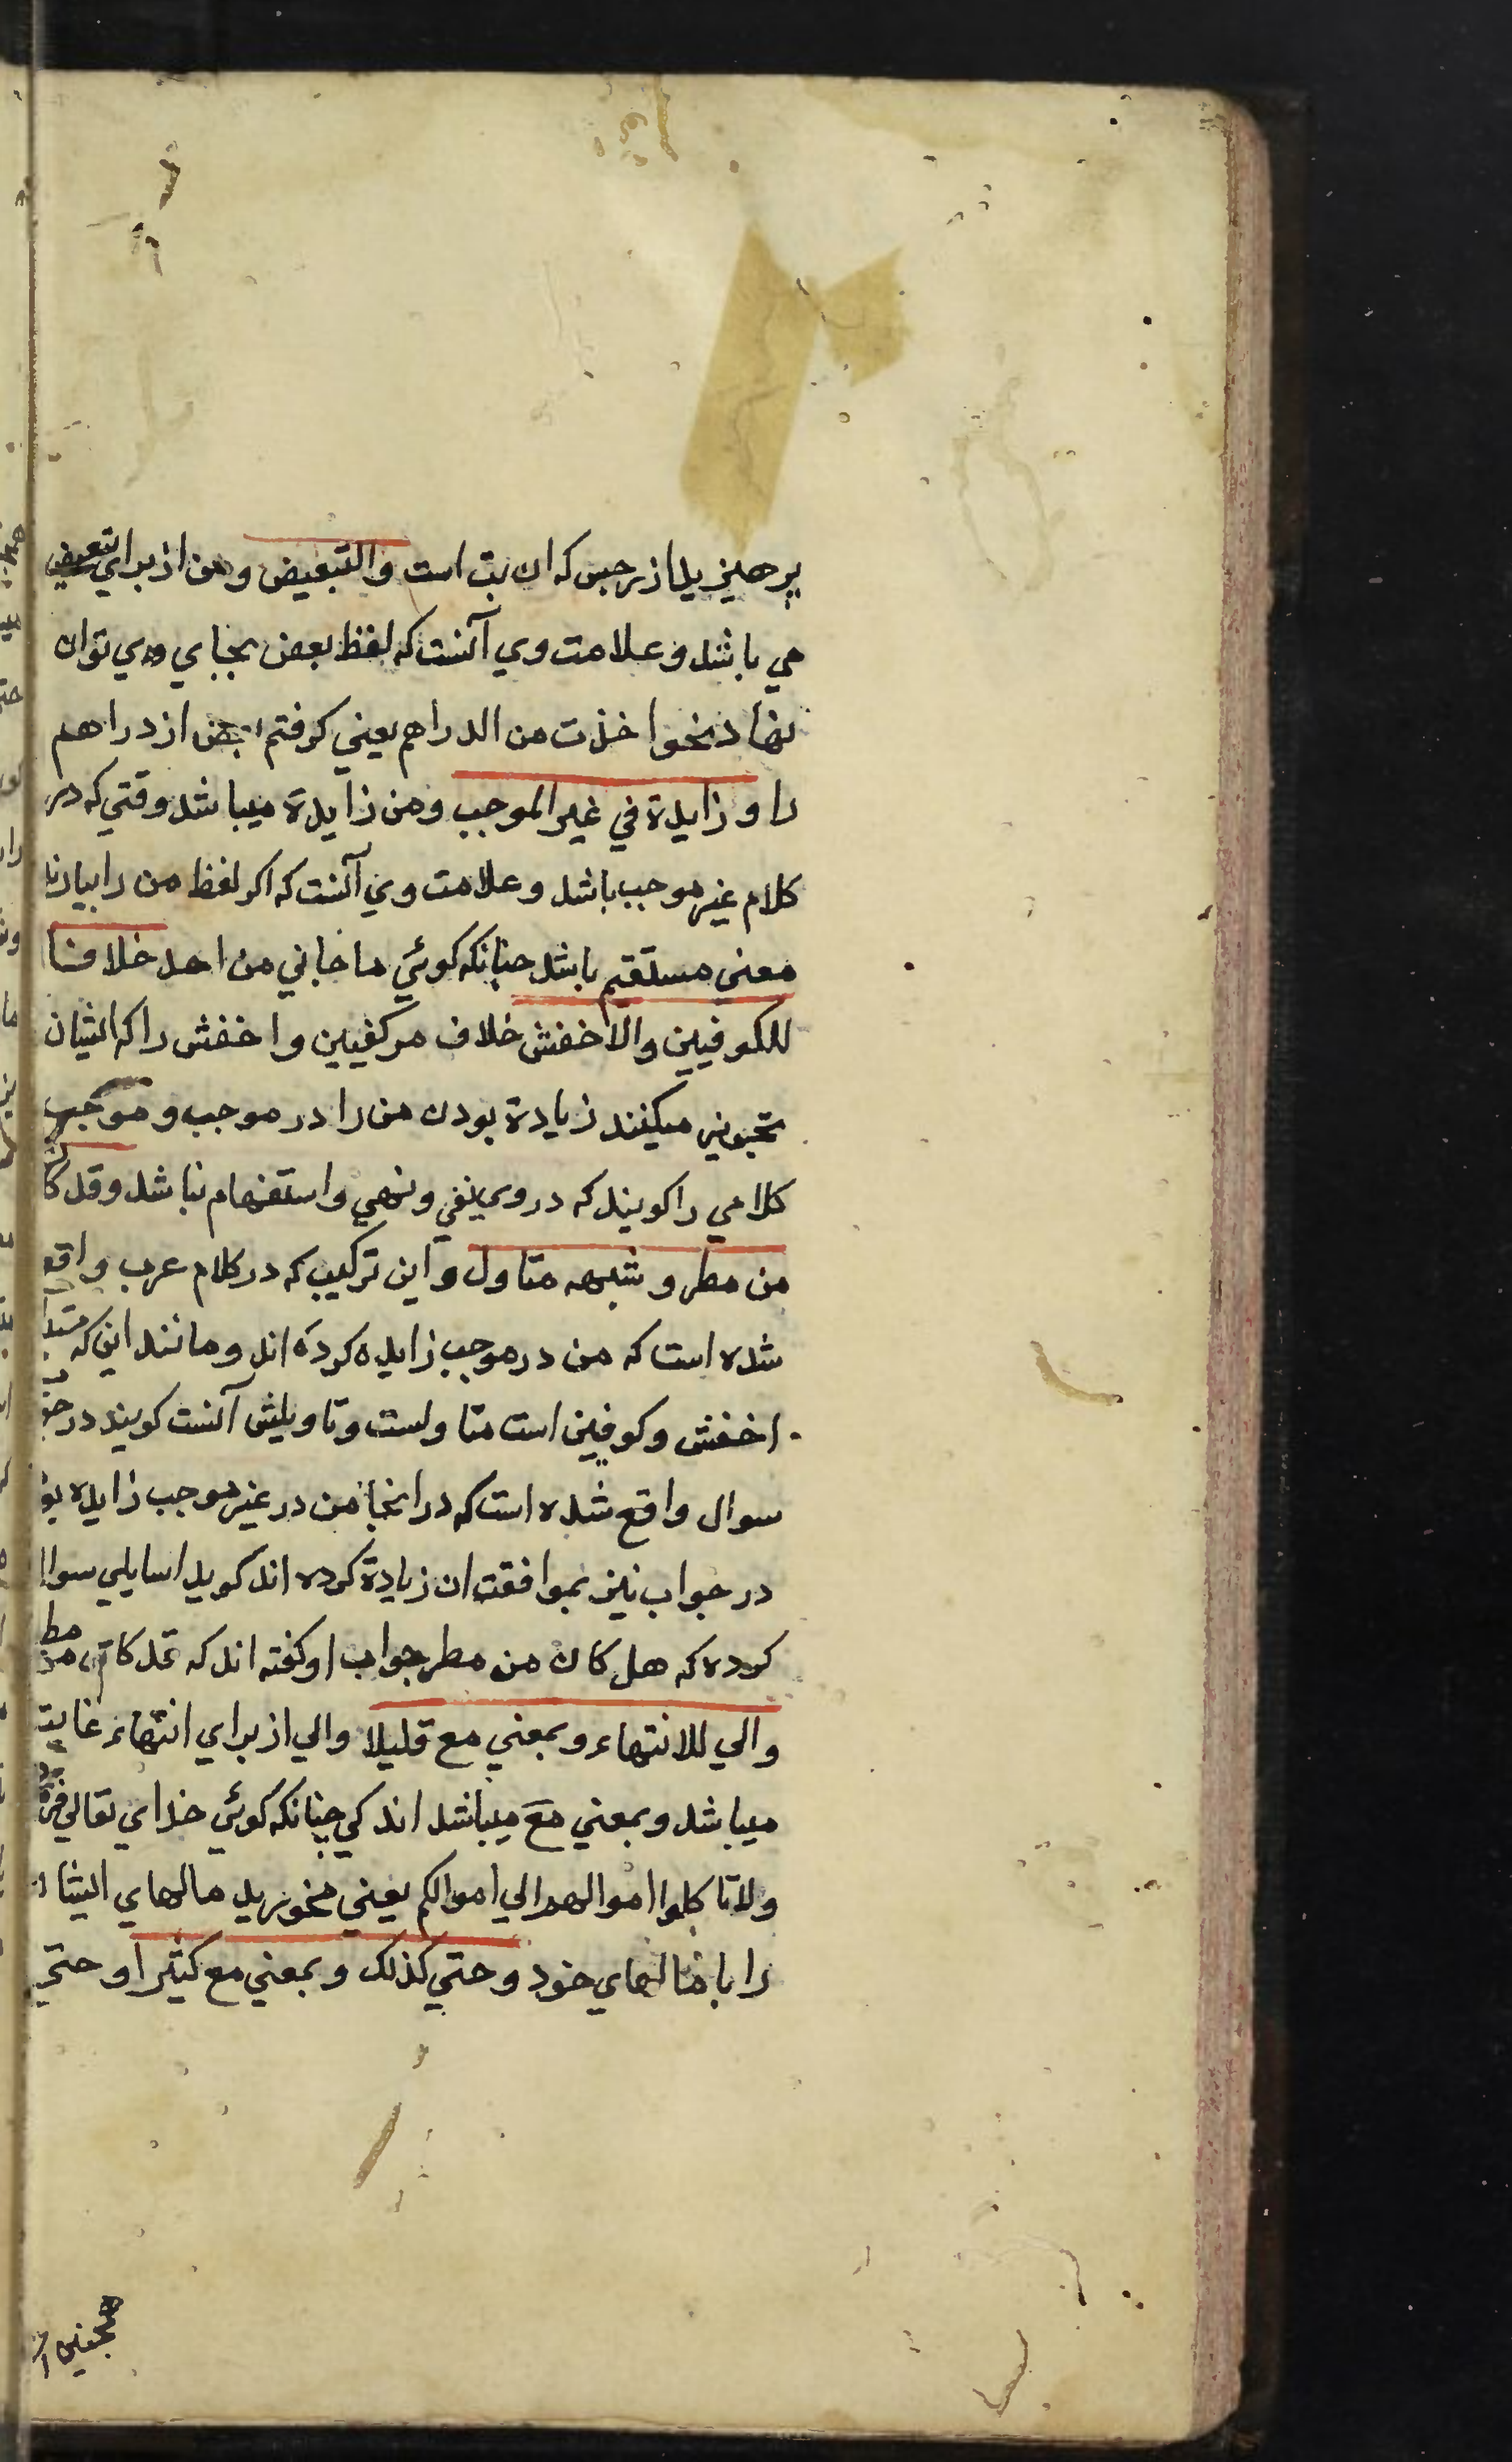 پرهیزید از رجس که ان بت است والتبعیض ومن از برای تبعیض
می باشد وعلامت وی آنست که لفظ بعض بجای وی توان
نهاد نحو اخذت من الدراهم یعنی کرفتم بعض از دراهم
را وزایدة فی غیر الموجب ومن زایدة میباشد وقتی که در
کلام غیر موجب باشد وعلامت وی آنست که اکر لفظ من را بیارند
معنی مستقیم باشد چنانکه کوئی ما جانی من احد خلافا
للکوفیین والاخفش خلاف مر کفیین واخفش را که ایشان
تجویز میکنند زیادة بودن من را در موجب وموجب
کلامی را کویند که در وی نفی ونهی واستفهام نباشد وقد کان
من مطر وشبهه متاول واین ترکیب که در کلام عرب واقع
شده است که من در موجب زایده کرده اند ومانند این که
اخفش وکوفیین است متاولست وتاویلش آنست کویند در
سوال واقع شده است که در انجا من در غیر موجب زایده بود
در جواب نیز بموافقت ان زیادة کرده اند کوید اسایلی سوال
کرده که هل کان من مطر جواب او کفته اند که قد کان من مطر
والی للانتهاء وبمعنی مع قلیلا والی از برای انتهاء غایت
میباشد وبمعنی مع میباشد اندکی چنانکه کوئی خدای تعالی فرموده
ولا تاکلوا اموالهم الی اموالکم یعنی مخورید مالهای ایشان
را با مالهای خود وحتی کذلک وبمعنی مع کثیرا وحتی
همچنین